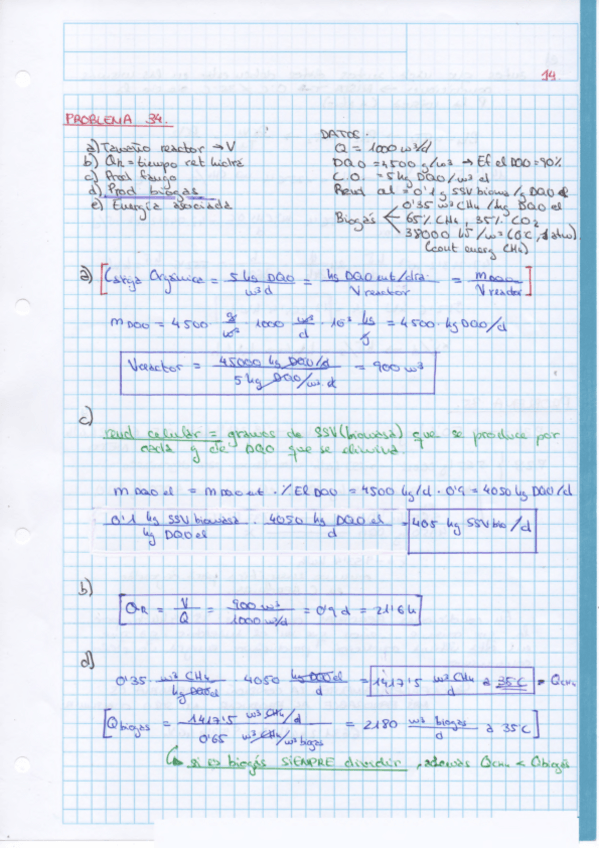 14.
PROBLEMA 34.
a) Tamaño reactor → V
b) QR = tiempo ret hidrá
c) Prod fango
d) Prod biogás
e) Energía asociada
DATOS.
Q = 1000 m³/d
DQO = 4500 g/m³ → Ef el DQO = 90%
C.O. = 5 kg DQO/m³ d
Rend al = 0'1 g SSV bioma /g DQO el
Biogás
0'35 m³ CH₄ /kg DQO el
65% CH₄, 35% CO₂
38000 kJ/m³ (0ºC, 1 atm)
(cont energ CH₄)
a) [Carga Orgánica = 5 kg DQO / m³ d = kg DQO ent/día / V reactor = m DQO / V reactor]
m DQO = 4500 g/m³ · 1000 m³/d · 10³ kg/g = 4500 · kg DQO/d
Vreactor = 45000 kg DQO/d / 5 kg DQO/m³ d = 900 m³
c)
rend celular = gramos de SSV (biomasa) que se produce por
cada g de DQO que se elimina.
m DQO el = m DQO ent · % El DQO = 4500 kg/d · 0'9 = 4050 kg DQO/d
0'1 kg SSV biomasa / kg DQO el · 4050 kg DQO el / d = 405 kg SSV bio/d
b)
QR = V/Q = 900 m³ / 1000 m³/d = 0'9 d = 21'6 h
d)
0'35 · m³ CH₄ / kg DQO · 4050 kg DQO el / d = 1417'5 m³ CH₄ / d a 35ºC = QCH₄
[Qbiogas = 1417'5 m³ CH₄/d / 0'65 m³ CH₄/m³ biogas = 2180 m³ biogas / d a 35ºC]
↳ si es biogás SIEMPRE dividir, además QCH₄ < Qbiogás